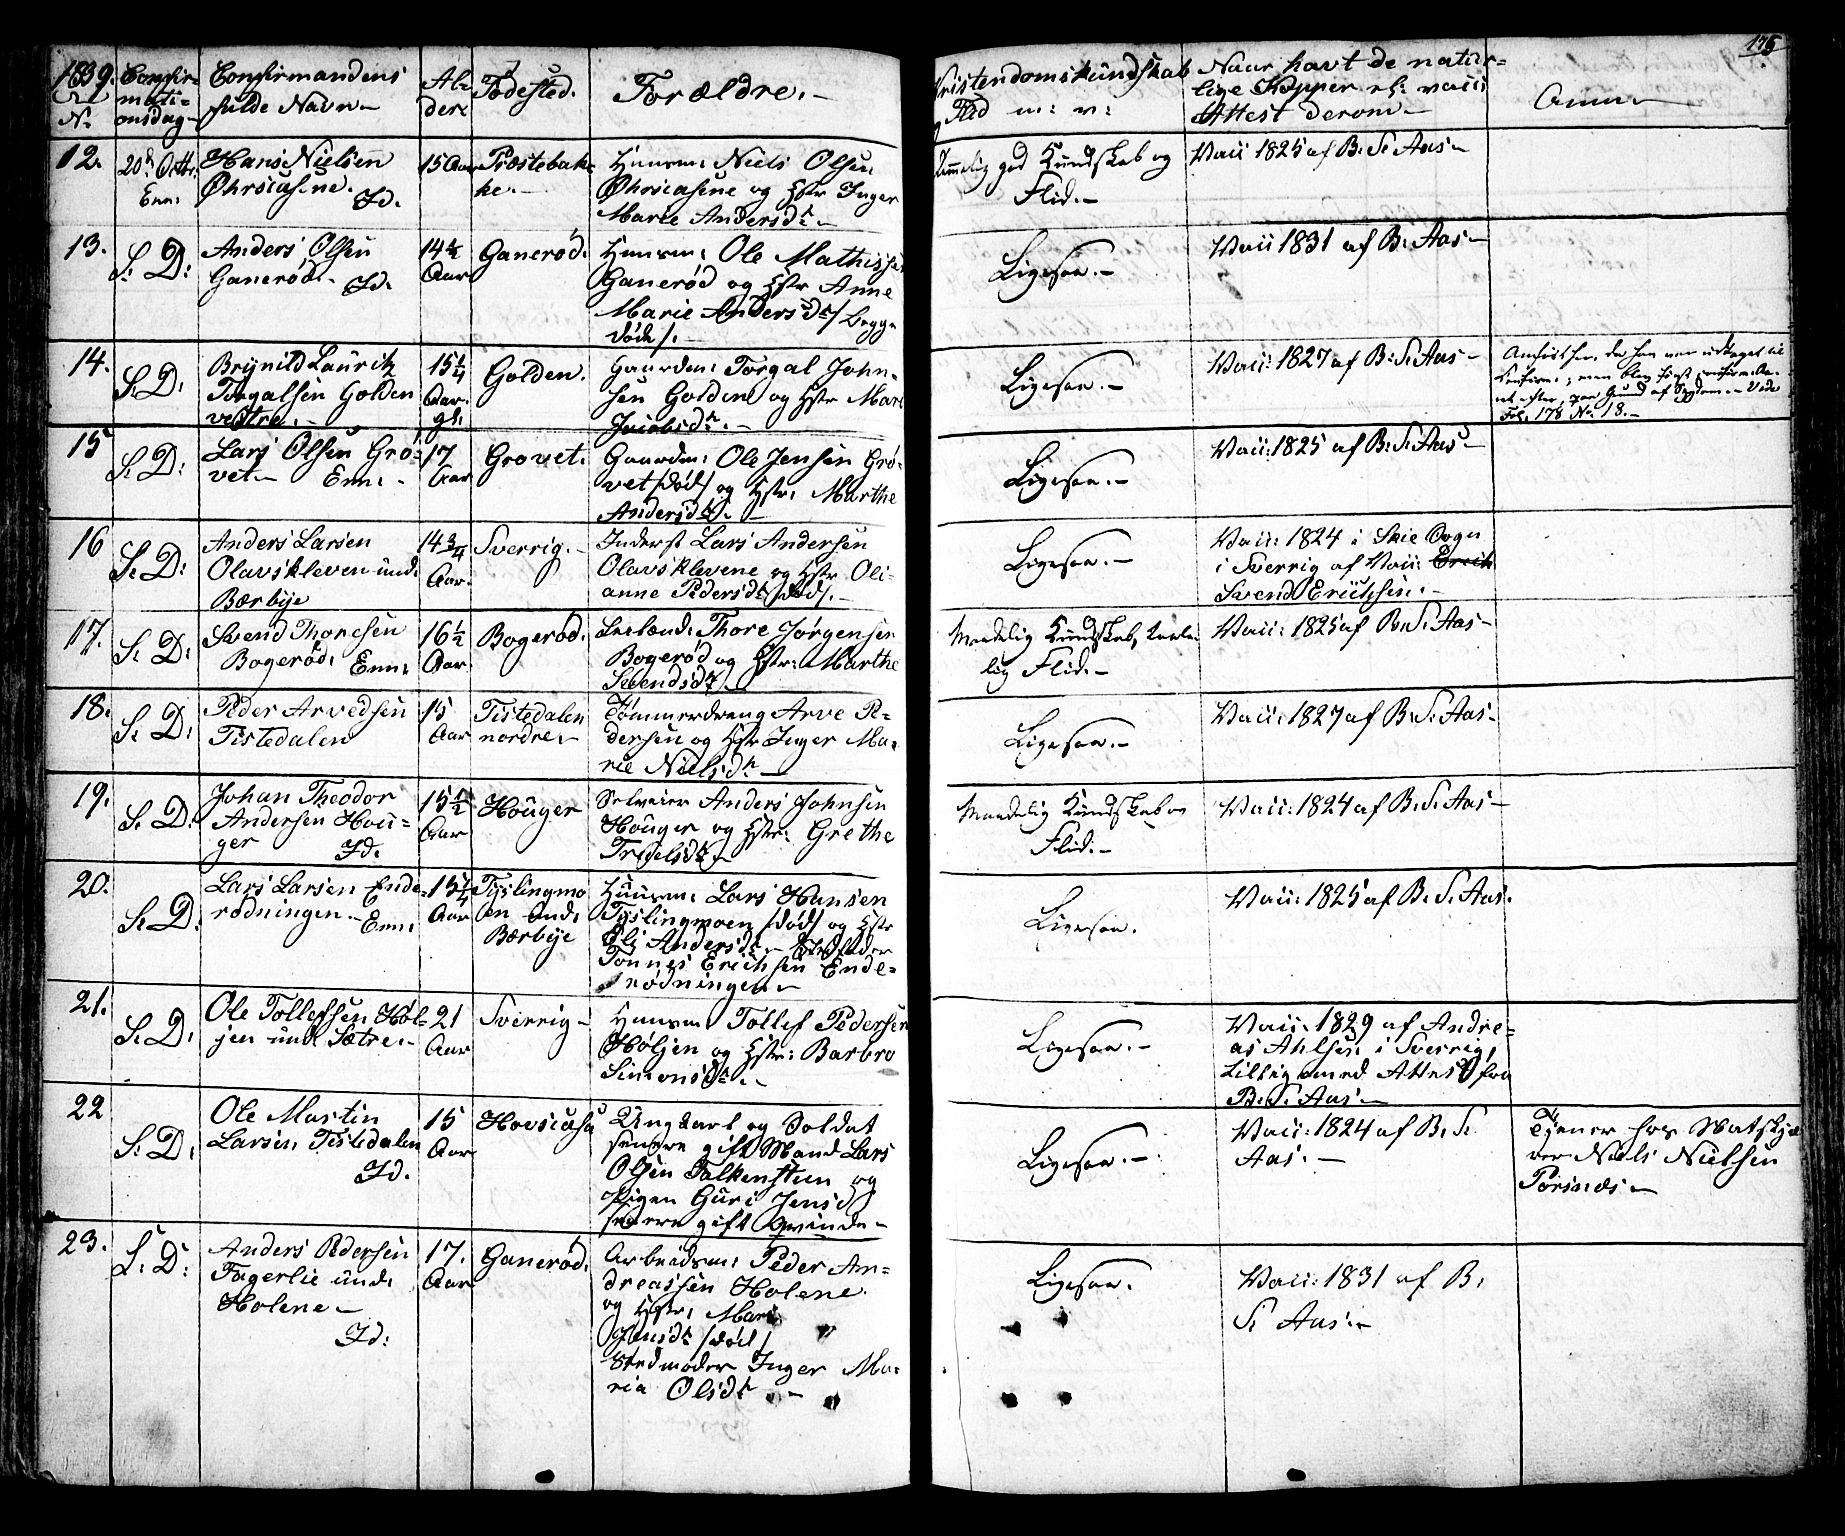 175
1839.
No
Confir-
mati-
onsdag
Confirmandens
fulde Navn
Al-
der
Fødested.
Forældre.
Kristendomskundskab
og Flid m: v:
Naar havt de natur-
lige Kopper el: vacc:
Attest derom
Anm
12.
20d Octbr.
Enn:
Hans Nielsen
Ørsiasene. Id.
15 Aar
Præstebak-
ke.
Huusm: Niels Olsen
Ørsiasene og Hstr Inger
Marie Andersdr
Temmelig god Kundskab og
Flid.
Vacc 1825 af B. S. Aas
13.
S: D:
Anders Olsen
Ganerød. Id.
14½
Aar
Ganerød.
Huusm: Ole Mathissen
Ganerød og Hstr Anne
Marie Andersdr / begge
døde /.
Ligesaa.
Vacc 1831 af B: Aas
14.
S: D:
Brynild Lauritz
Torgalsen Golden
vestre.
15¼
Aar
gl.
Golden.
Gaardm: Torgal John-
sen Golden og Hstr Mari
Jacobsdr.
Ligesaa.
Vacc: 1827 af B: S: Aas
Anført her, da han var udtaget til
Confirm:, men blev først confirme-
ret efter, paa Grund af Sygdom. Vide
Fol. 178 No 18.
15
S: D:
Lars Olsen Grø-
vet Enn:
17
Aar
Grøvet.
Gaardm: Ole Jensen Grø-
vet /død/ og Hstr: Marthe
Andersdr.
Ligesaa.
Vacc: 1825 af B: S: Aas
16
S: D:
Anders Larsen
Olavskleven und:
Bærbye
14¾
Aar.
Sverrig.
Inderst Lars Andersen
Olavsklevene og Hstr Oli-
anne Pedersdr /død/.
Ligesaa.
Vacc: 1824 i Skie Sogn
i Sverrig af Vacc: Erich
Svend Erichsen.
17.
S: D:
Svend Thoresen
Bogerød: Enn:
16½
Aar
Bogerød.
Leilænd: Thore Jørgensen
Bogerød og Hstr: Marthe
Svendsdr
Maadelig Kundskab,
lig Flid.
Vacc: 1825 af B: S: Aas
18.
S. D:
Peder Arvedsen
Tistedalen
15
Aar
Tistedalen
nordre.
Tømmerdreng Arve Pe-
dersen og Hstr Inger Ma-
rie Nielsdr
Ligesaa.
Vacc: 1827 af B: S: Aas
19.
S. D:
Johan Theodor
Andersen Hou-
ger Id.
15½
Aar
Houger
Selveier Anders Johnsen
Houger og Hstr: Grethe
Troelsdr
Maadelig Kundskab og
Flid.
Vacc: 1824 af B: S: Aas
20.
S. D:
Lars Larsen Ende-
rødningen. Enn:
15¼
Aar
Tyslingmo
en und:
Bærbye
Huusm: Lars Hansen
Tyslingmoen /død/ og Hstr
Eli Andersdr Stedfader
Tønnes Erichsen Ende-
rødningen
Ligesaa.
Vacc: 1825 af B: S: Aas.
21.
S. D:
Ole Tollefsen Høl-
jen und Sætre.
21
Aar
Sverrig
Huusm: Tollef Pedersen
Høljen og Hstr: Barbro
Simonsdr.
Ligesaa.
Vacc: 1829 af Andre-
as Ahlsen i Sverrig,
tillige med Attest fra
B. S: Aas
22
S. D:
Ole Martin
Larsen Tistedalen
Id.
15
Aar
Hovsiasa
Ungkarl og Soldat
senere gift Mand Lars
Olsen Falkensteen og
Pigen Guri Jensdr
senere gift Qvinde
Ligesaa.
Vacc: 1824 af B: S:
Aas.
Tjener hos
Niels Nielsen
Porsnes
23.
S: D:
Anders Pedersen
Fagerlie und:
Holene
Id:
17.
Aar
Ganerød.
Arbeidsm: Peder An-
dreassen Holene.
og Hstr: Mari
Jensdr /død/
Stedmoder Inger Ma-
ria Olsdr
Ligesaa.
Vacc: 1831 af B:
S: Aas.